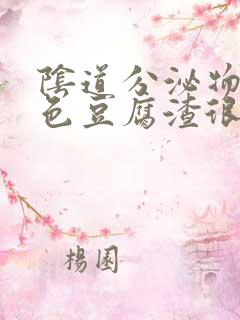 陰道分泌物
色豆腐渣很
楊園